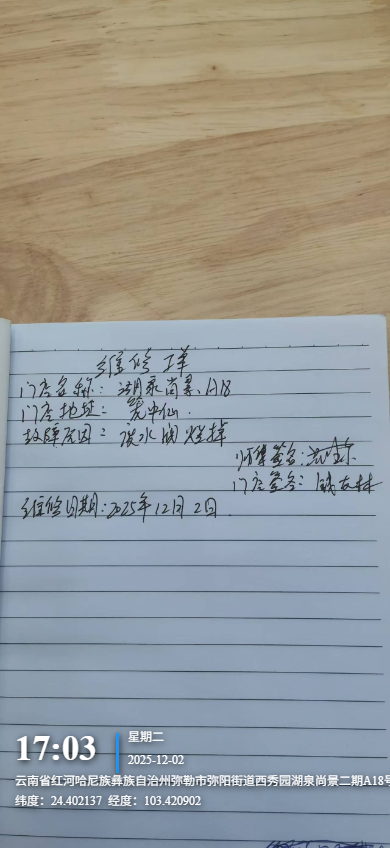 维修单
门店名称：湖泉尚景.A18
门店地址：瓮中仙.
故障原因：废水阀烂掉
师傅签名：
门店签名：钱友林
维修日期：2025年12月2日.
17:03
星期二
2025-12-02
云南省红河哈尼族彝族自治州弥勒市弥阳街道西秀园湖泉尚景二期A18号
纬度：24.402137 经度：103.420902